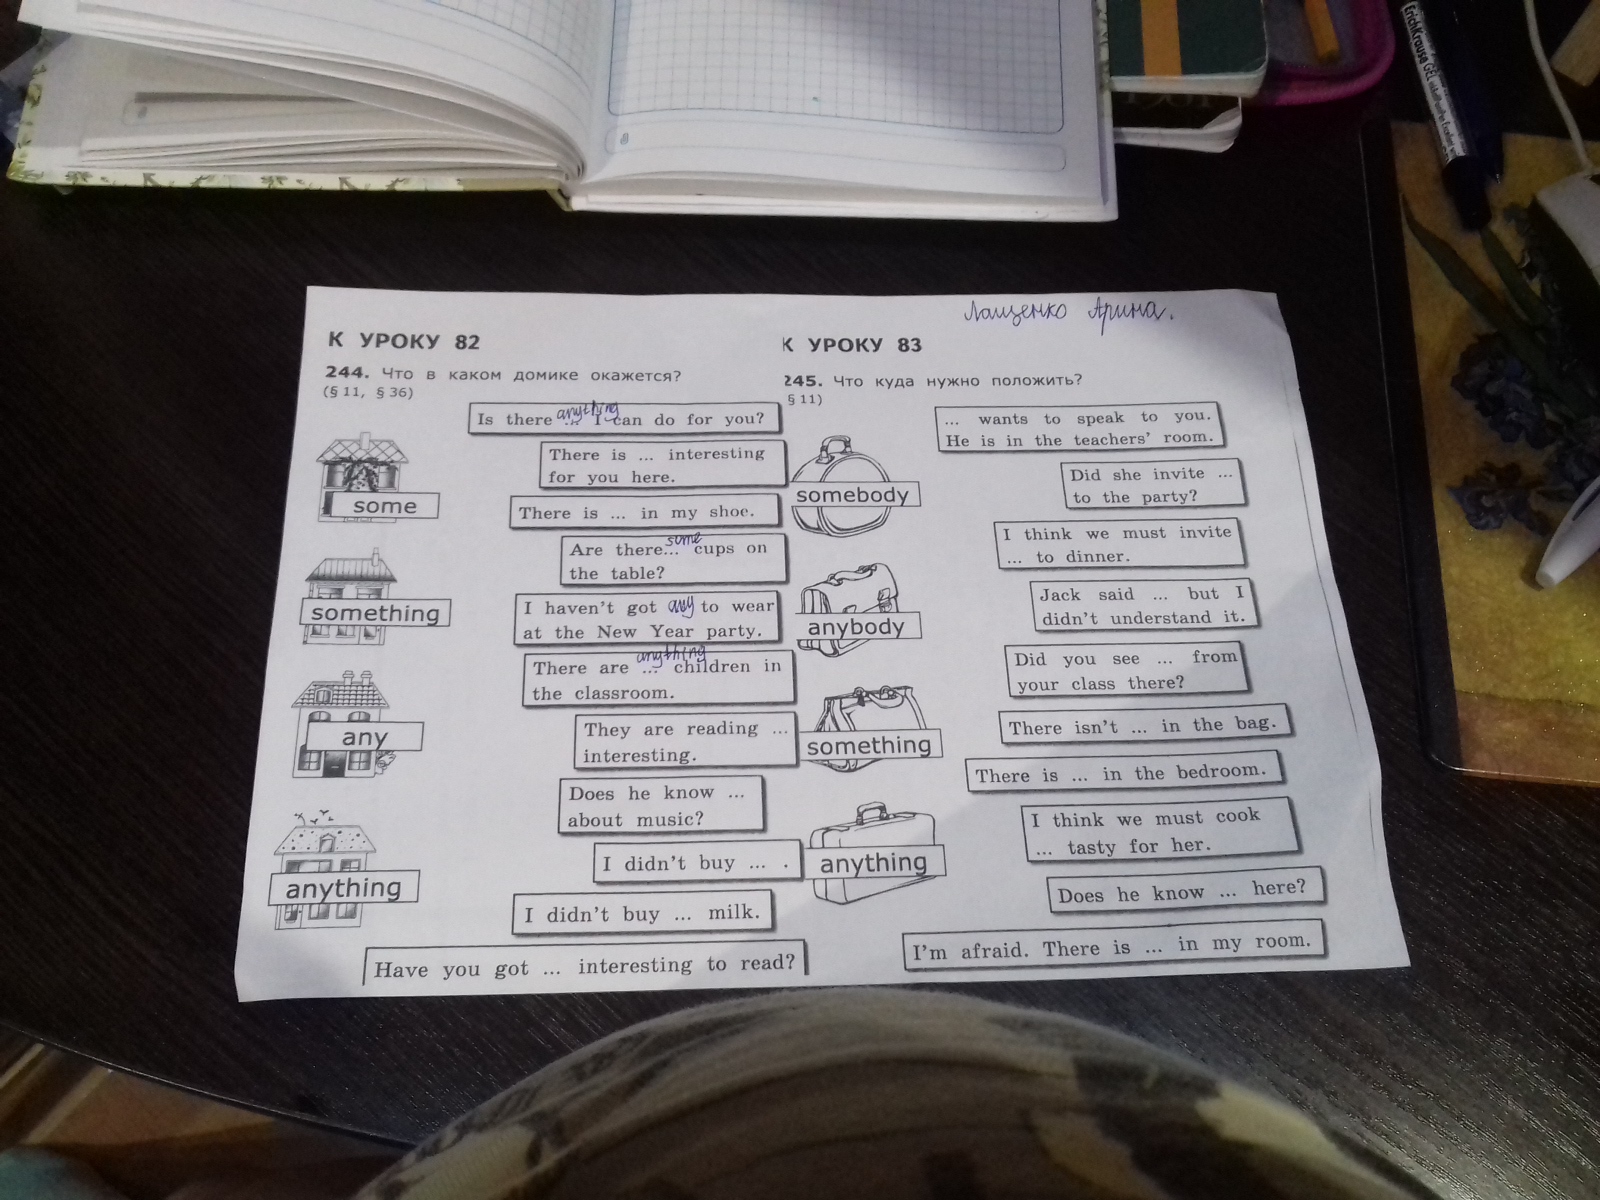 ErichKrause GEL
Лащенко Арина.
К УРОКУ 82
244. Что в каком домике окажется?
(§ 11, § 36)
Is there ... I can do for you?
anything
There is ... interesting
for you here.
some
There is ... in my shoe.
Are there... cups on
some
the table?
something
I haven't got any to wear
at the New Year party.
There are ... children in
anything
the classroom.
any
They are reading ...
interesting.
Does he know ...
about music?
anything
I didn't buy ... .
I didn't buy ... milk.
Have you got ... interesting to read?
К УРОКУ 83
245. Что куда нужно положить?
§ 11)
... wants to speak to you.
He is in the teachers' room.
somebody
Did she invite ...
to the party?
I think we must invite
... to dinner.
anybody
Jack said ... but I
didn't understand it.
Did you see ... from
your class there?
something
There isn't ... in the bag.
There is ... in the bedroom.
I think we must cook
... tasty for her.
anything
Does he know ... here?
I'm afraid. There is ... in my room.